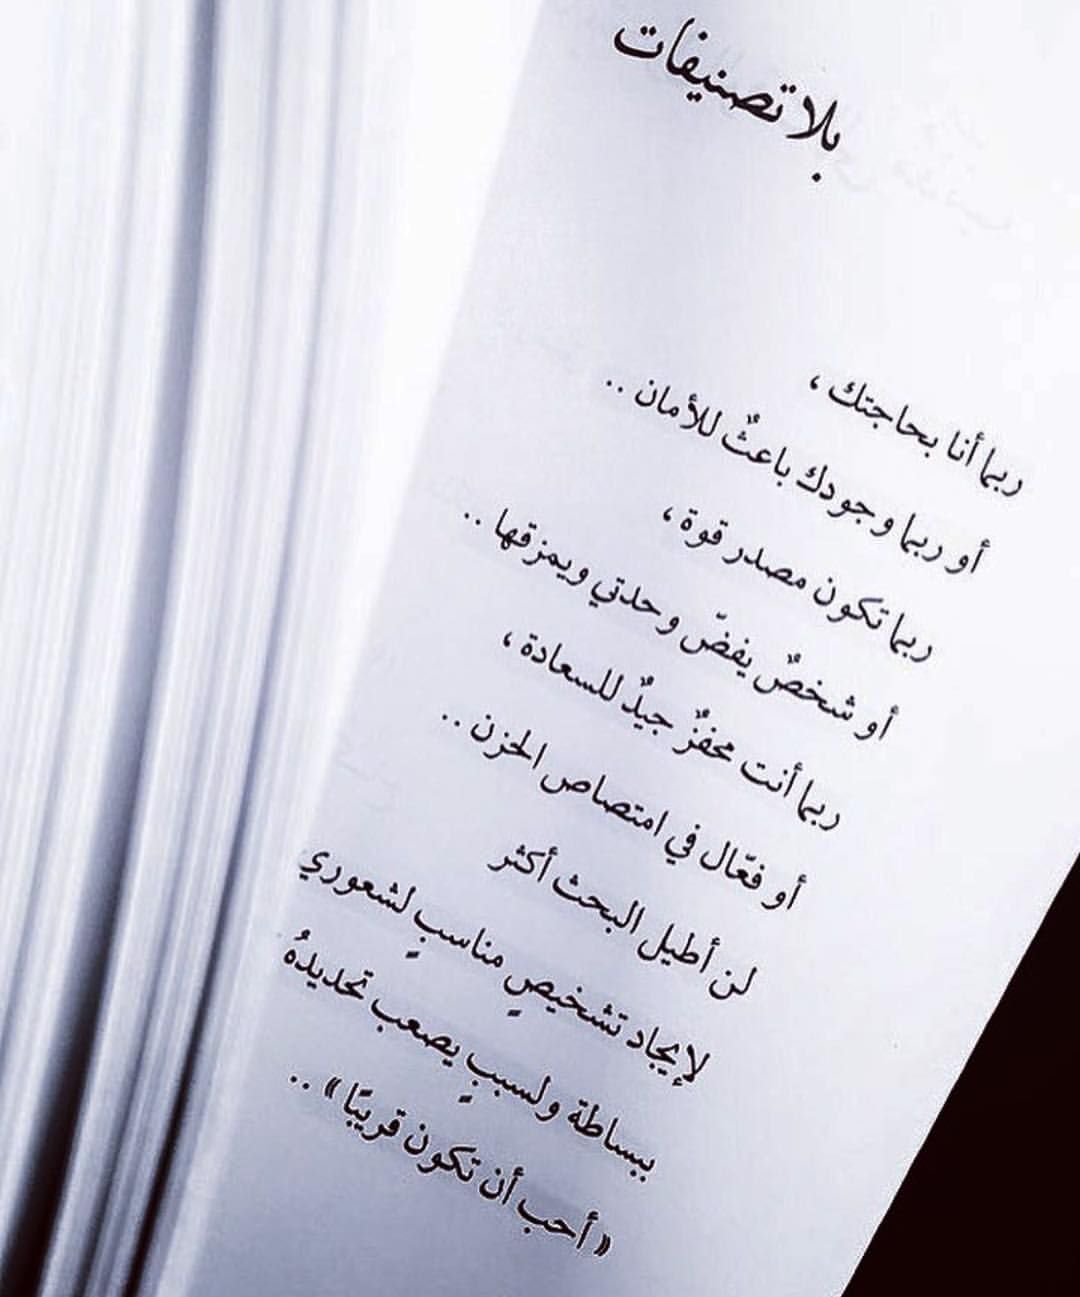 بلا تصنيفات
ربما أنا بحاجتك ،
أو ربما وجودك باعثٌ للأمان ..
ربما تكون مصدر قوة ،
أو شخصٌ يفضّ وحدتي ويمزقها ..
ربما أنت محفزٌ جيدٌ للسعادة ،
أو فعّال في امتصاص الحزن ..
لن أطيل البحث أكثر
لإيجاد تشخيصٍ مناسبٍ لشعوري
ببساطة ولسببٍ يصعب تحديدهُ
«أحب أن تكون قريبًا» ..